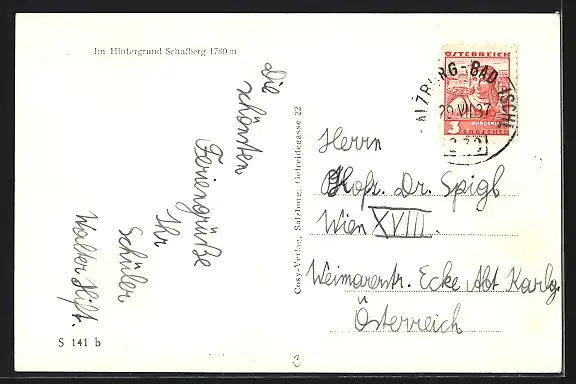 Im Hintergrund Schafberg 1780 m
die
schönsten
Feriengrüße
Ihr
Schüler
Walter Hift.
S 141 b
Cosy-Verlag, Salzburg, Getreidegasse 22
ÖSTERREICH
3
GROSCHEN
Herrn
Hofr. Dr. Spigl
Wien XVIII.
Weimarerstr. Ecke Abt Karlg.
Österreich